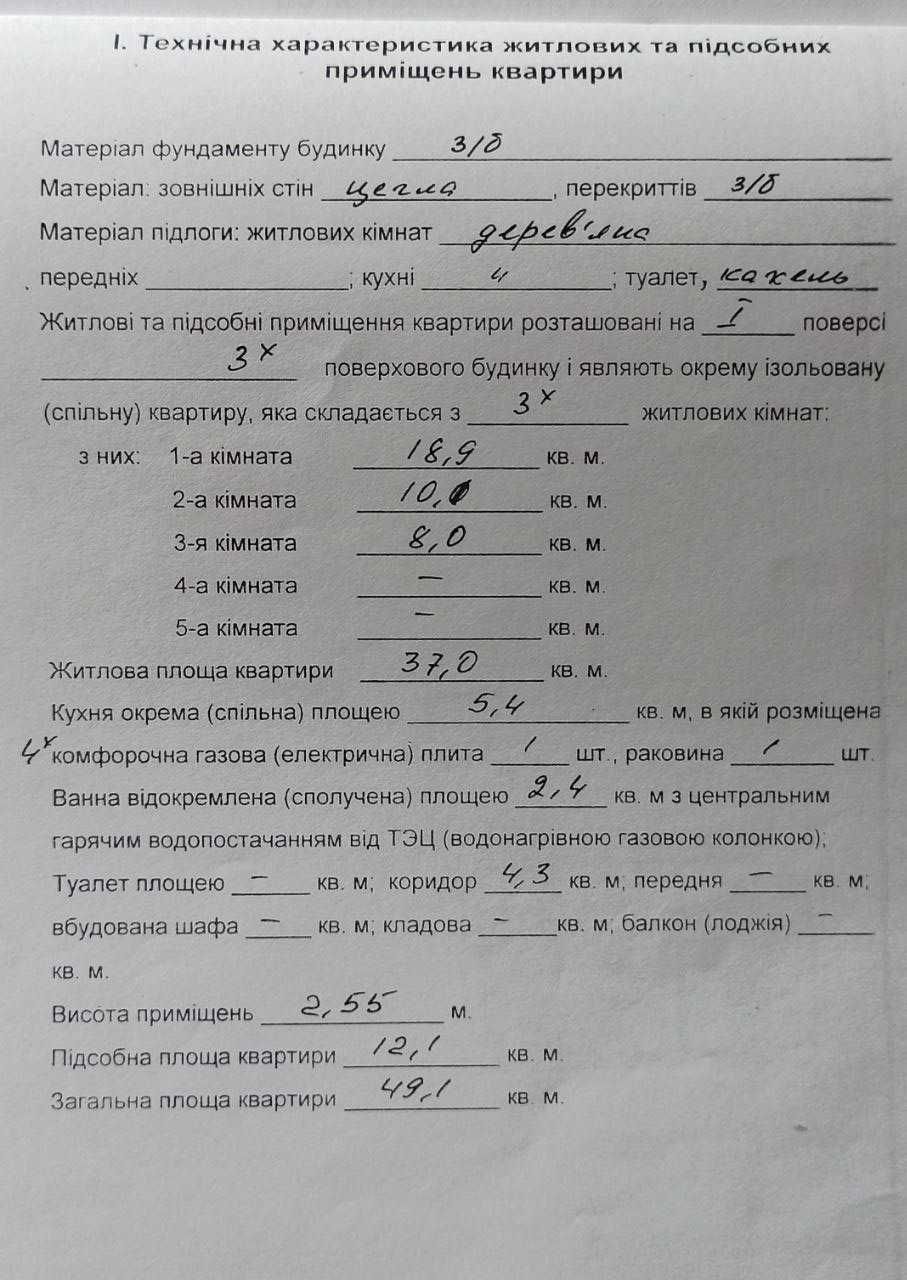 I. Технічна характеристика житлових та підсобних
приміщень квартири
Матеріал фундаменту будинку з/б
Матеріал: зовнішніх стін цегла, перекриттів з/б
Матеріал підлоги: житлових кімнат дерев'яна
передніх ; кухні ; туалет, кахель
Житлові та підсобні приміщення квартири розташовані на I поверсі
3х поверхового будинку і являють окрему ізольовану
(спільну) квартиру, яка складається з 3х житлових кімнат:
з них: 1-а кімната 18,9 кв. м.
2-а кімната 10,1 кв. м.
3-я кімната 8,0 кв. м.
4-а кімната – кв. м.
5-а кімната – кв. м.
Житлова площа квартири 37,0 кв. м.
Кухня окрема (спільна) площею 5,4 кв. м, в якій розміщена
4х комфорочна газова (електрична) плита 1 шт., раковина 1 шт.
Ванна відокремлена (сполучена) площею 2,4 кв. м з центральним
гарячим водопостачанням від ТЭЦ (водонагрівною газовою колонкою);
Туалет площею – кв. м; коридор 4,3 кв. м; передня – кв. м;
вбудована шафа – кв. м; кладова – кв. м; балкон (лоджія) –
кв. м.
Висота приміщень 2,55 м.
Підсобна площа квартири 12,1 кв. м.
Загальна площа квартири 49,1 кв. м.